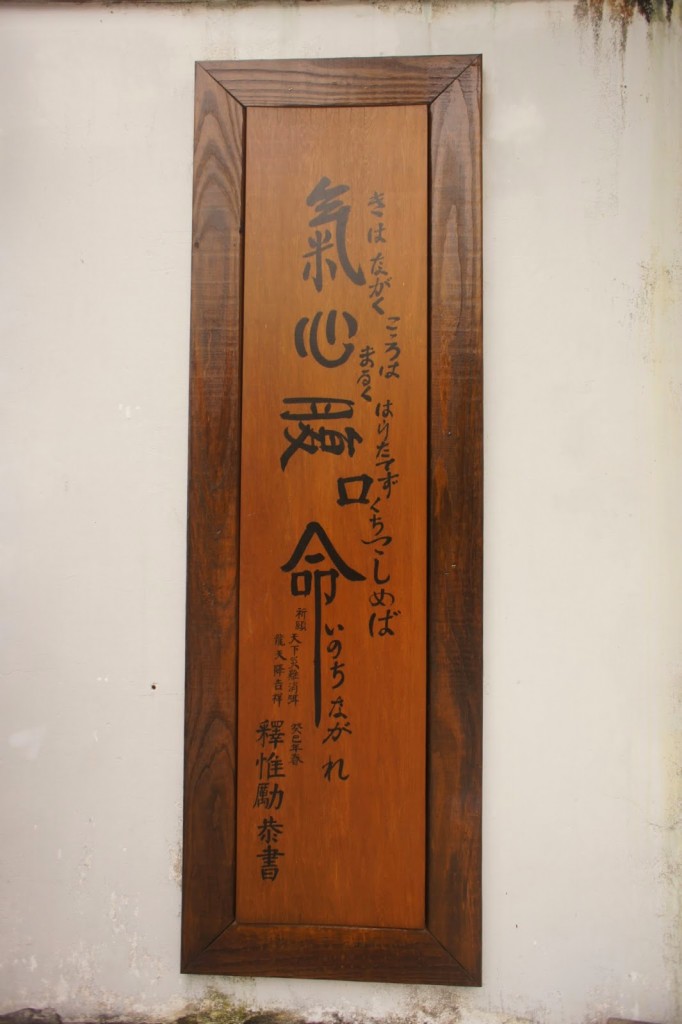 きはながく
こころは
まるく
はらたてず
くちつつしめば
いのちながれ
氣心腹口命
祈願
天下災難消弭
龍天降吉祥
癸巳年春
釋惟勵恭書